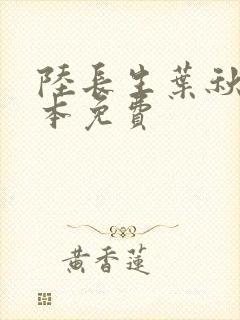 陸長生葉秋
本免費
黃香蓮